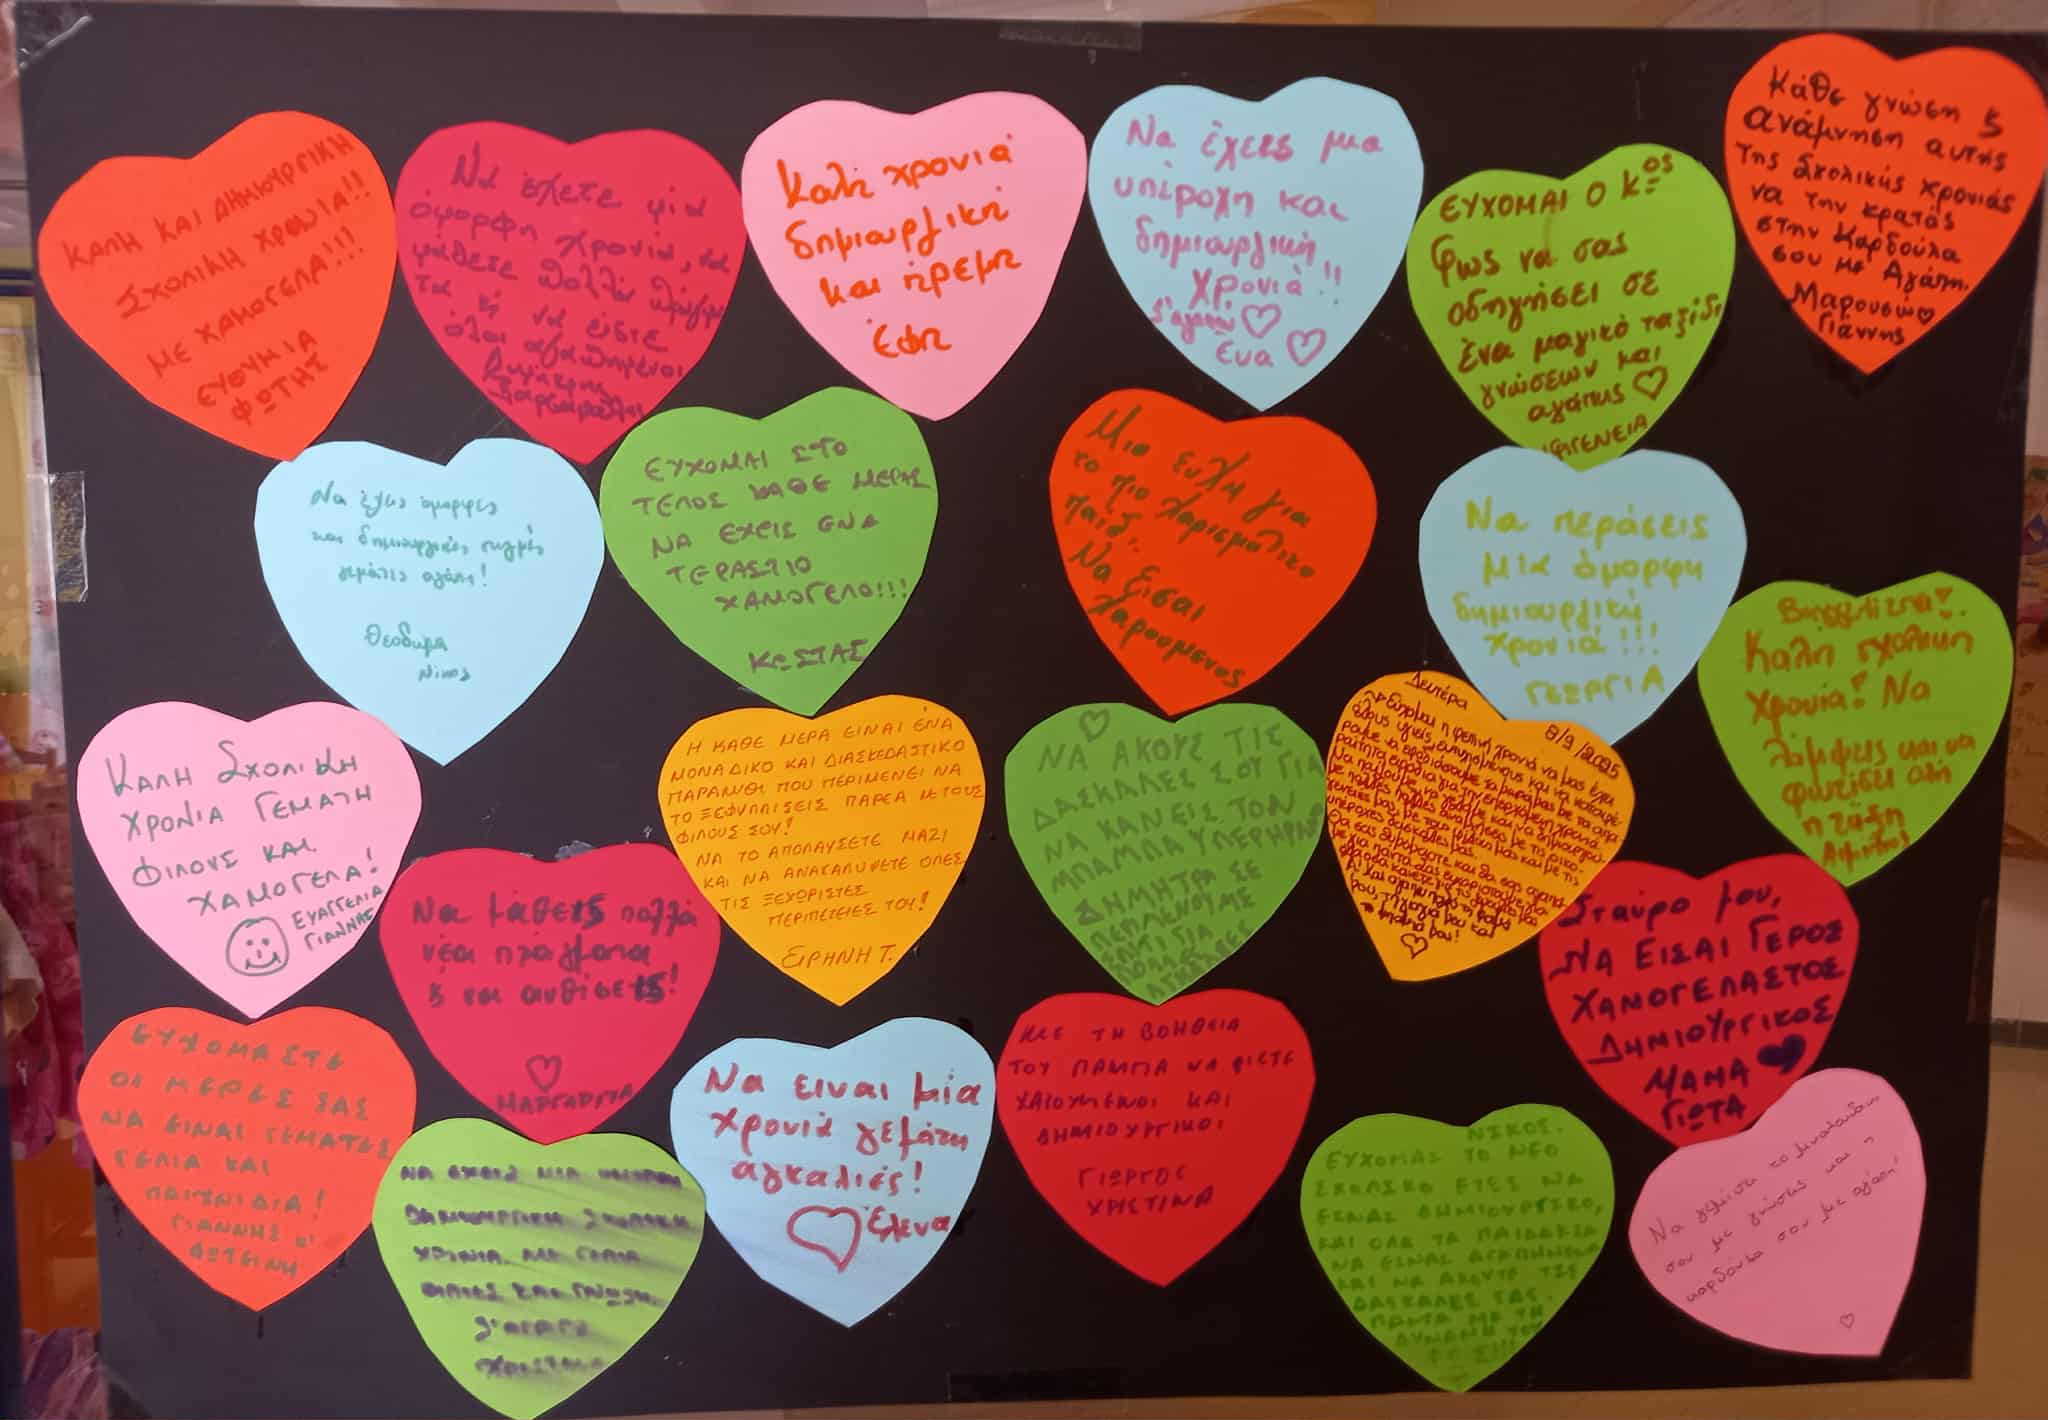 ΚΑΛΗ ΚΑΙ ΔΗΜΙΟΥΡΓΙΚΗ
ΣΧΟΛΙΚΗ ΧΡΟΝΙΑ!!
ΜΕ ΧΑΜΟΓΕΛΑ!!!
ΕΥΘΥΜΙΑ
ΦΩΤΗΣ
Να έχετε μια
όμορφη χρονιά, να
μάθετε πολλά πράγμα
τα & να είστε
όλοι αγαπημένοι
Δημήτρης
Καλή χρονιά
δημιουργική
και ήρεμη
Έφη
Να έχεις μια
υπέροχη και
δημιουργική
χρονιά!!
Σ'αγαπώ
Ευα
ΕΥΧΟΜΑΙ Ο Κ-ος
Φως να σας
οδηγήσει σε
ένα μαγικό ταξίδι
γνώσεων και
αγάπης
ΙΦΙΓΕΝΕΙΑ
Κάθε γνώση &
ανάμνηση αυτής
της σχολικής χρονιάς
να την κρατάς
στην καρδούλα
σου με Αγάπη.
Μαρουσώ
Γιάννης
Να έχεις όμορφες
και δημιουργικές στιγμές
γεμάτες αγάπη!
Θεοδωρα
Νικος
ΕΥΧΟΜΑΙ ΣΤΟ
ΤΕΛΟΣ ΚΑΘΕ ΜΕΡΑΣ
ΝΑ ΕΧΕΙΣ ΕΝΑ
ΤΕΡΑΣΤΙΟ
ΧΑΜΟΓΕΛΟ!!!
ΚΩΣΤΑΣ
Μια ευχή για
το πιο χαρισματικο
παιδί.
Να Είσαι
Χαρουμενος
Να περάσεις
μια όμορφη
δημιουργική
χρονιά!!!
ΓΕΩΡΓΙΑ
Καλή σχολική
χρονιά! Να
λάμψεις και να
φωτίσει όλη
η τάξη
ΚΑΛΗ ΣΧΟΛΙΚΗ
ΧΡΟΝΙΑ ΓΕΜΑΤΗ
ΦΙΛΟΥΣ ΚΑΙ
ΧΑΜΟΓΕΛΑ!
ΕΥΑΓΓΕΛΙΑ
ΓΙΑΝΝΗΣ
Να μάθεις πολλά
νέα πράγματα
& να ανθίσεις!
ΜΑΡΓΑΡΙΤΑ
Η ΚΑΘΕ ΜΕΡΑ ΕΙΝΑΙ ΕΝΑ
ΜΟΝΑΔΙΚΟ ΚΑΙ ΔΙΑΣΚΕΔΑΣΤΙΚΟ
ΠΑΡΑΜΥΘΙ ΠΟΥ ΠΕΡΙΜΕΝΕΙ ΝΑ
ΤΟ ΞΕΦΥΛΛΙΣΕΙΣ ΠΑΡΕΑ Μ'ΤΟΥΣ
ΦΙΛΟΥΣ ΣΟΥ!
ΝΑ ΤΟ ΑΠΟΛΑΥΣΕΤΕ ΜΑΖΙ
ΚΑΙ ΝΑ ΑΝΑΚΑΛΥΨΕΤΕ ΟΛΕΣ
ΤΙΣ ΞΕΧΩΡΙΣΤΕΣ
ΠΕΡΙΠΕΤΕΙΕΣ ΤΟΥ!
ΕΙΡΗΝΗ Τ.
ΝΑ ΑΚΟΥΣ ΤΙΣ
ΔΑΣΚΑΛΕΣ ΣΟΥ ΓΙΑ
ΝΑ ΚΑΝΕΙΣ ΤΟΝ
ΜΠΑΜΠΑ ΥΠΕΡΗΦΑΝΟ
ΔΗΜΗΤΡΑ ΣΕ
ΠΕΡΙΜΕΝΟΥΜΕ
ΣΠΙΤΙ ΓΙΑ
ΠΟΛΛΕΣ
ΑΓΚΑΛΙΕΣ
Δευτέρα 8/9/2025
Εύχομαι η φετινή χρονιά να μας έχει
όλους υγιείς, ευτυχισμένους και να
Σταύρο μου,
ΝΑ ΕΙΣΑΙ ΓΕΡΟΣ
ΧΑΜΟΓΕΛΑΣΤΟΣ
ΔΗΜΙΟΥΡΓΙΚΟΣ
ΜΑΜΑ
ΓΙΩΤΑ
ΕΥΧΟΜΑΣΤΕ
ΟΙ ΜΕΡΕΣ ΣΑΣ
ΝΑ ΕΙΝΑΙ ΓΕΜΑΤΕΣ
ΓΕΛΙΑ ΚΑΙ
ΠΑΙΧΝΙΔΙΑ!
ΓΙΑΝΝΗΣ κ'
ΦΩΤΕΙΝΗ
ΝΑ ΕΧΕΙΣ ΜΙΑ
ΔΗΜΙΟΥΡΓΙΚΗ ΣΧΟΛΙΚΗ
ΧΡΟΝΙΑ ΜΕ ΓΕΛΙΑ
ΦΙΛΙΕΣ ΚΑΙ ΓΝΩΣΗ.
Σ'ΑΓΑΠΩ
Να ειναι μία
χρονιά γεμάτη
αγκαλιές!
Έλενα
ΜΕ ΤΗ ΒΟΗΘΕΙΑ
ΤΟΥ ΠΑΜΠΑ ΝΑ ΕΙΣΤΕ
ΧΑΡΟΥΜΕΝΟΙ ΚΑΙ
ΔΗΜΙΟΥΡΓΙΚΟΙ
ΓΙΩΡΓΟΣ
ΧΡΙΣΤΙΝΑ
ΝΙΚΟΣ.
ΕΥΧΟΜΑΙ ΤΟ ΝΕΟ
ΣΧΟΛΙΚΟ ΕΤΟΣ ΝΑ
ΕΙΝΑΙ ΔΗΜΙΟΥΡΓΙΚΟ,
ΚΑΙ ΟΛΑ ΤΑ ΠΑΙΔΑΚΙΑ
ΝΑ ΕΙΝΑΙ ΑΓΑΠΗΜΕΝΑ
ΚΑΙ ΝΑ ΑΚΟΥΤΕ ΤΙΣ
ΔΑΣΚΑΛΕΣ ΣΑΣ.
ΠΑΝΤΑ ΜΕ ΤΗ
ΔΥΝΑΜΗ ΤΟΥ
Να γεμίσει το μυαλουδάκι
σου με γνώσεις και η
καρδούλα σου με αγάπη!